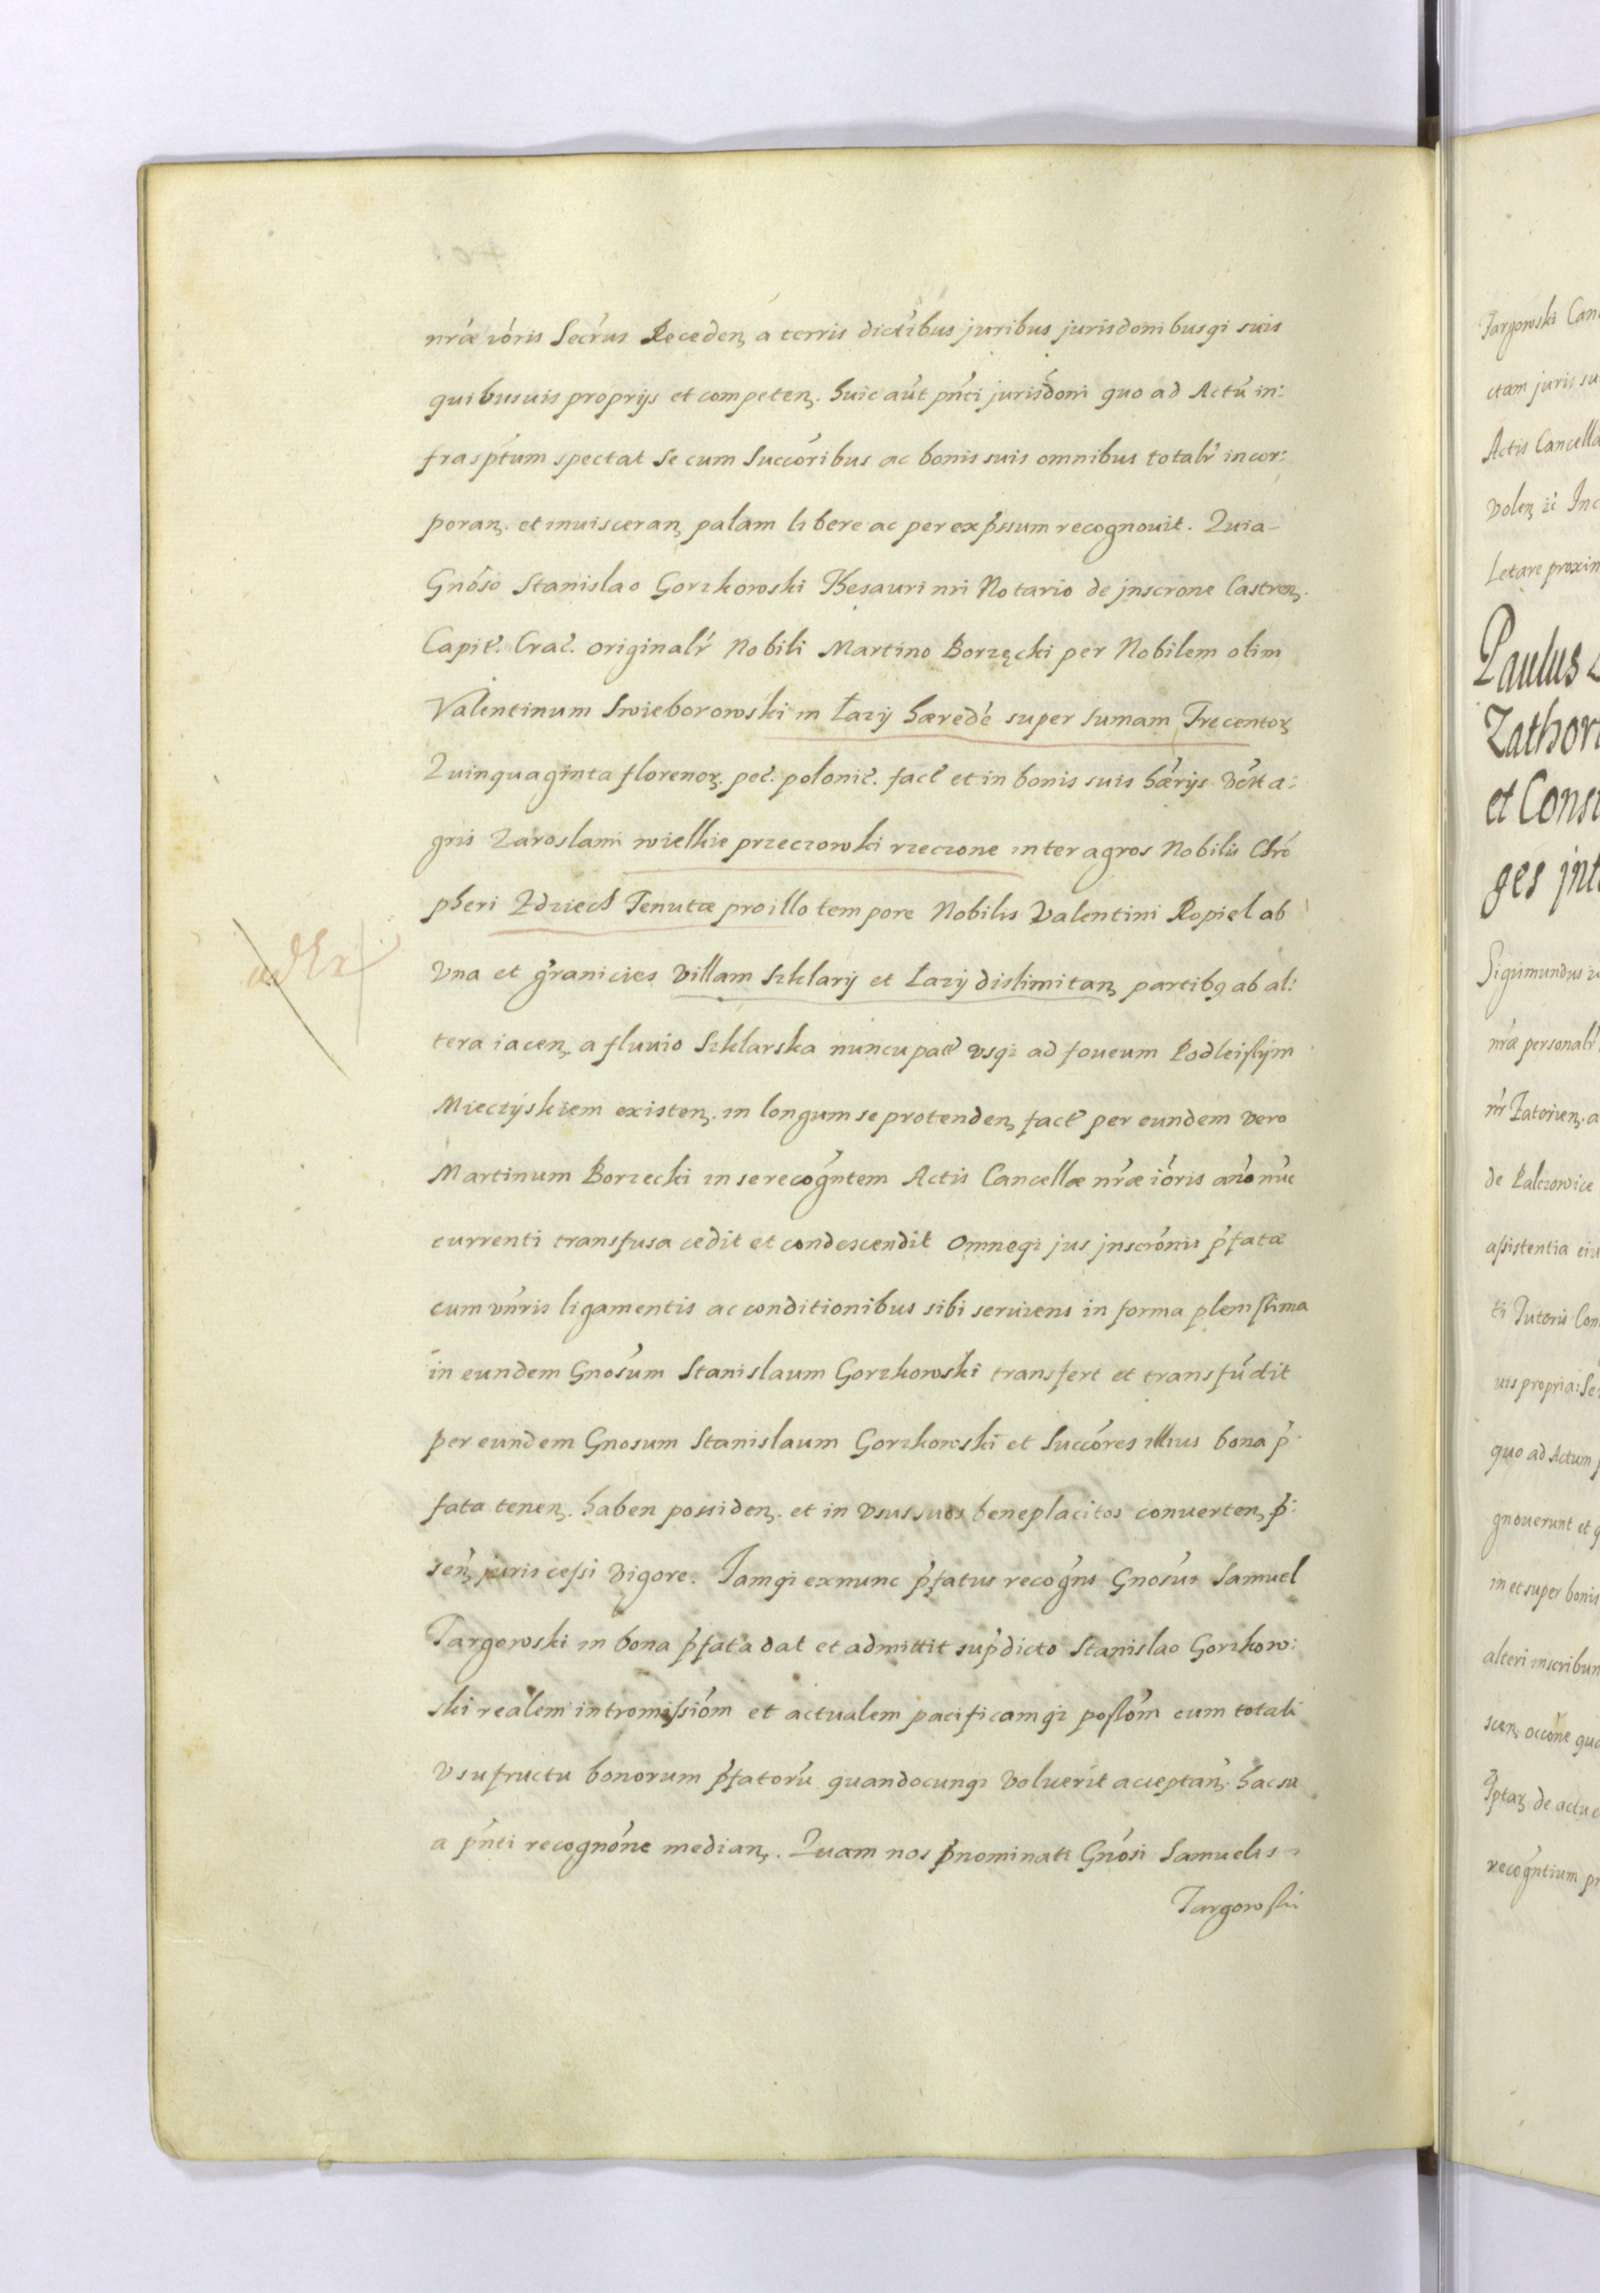 nrae ioris Secrus Receden a terris dictibus juribus jurisdonibusqi suis
quibusuis proprijs et competen. huic aut pnti jurisdoni quo ad Actu in:
frasptum spectat Se cum Succoribus ac bonis suis omnibus totalr incor:
poran. et inuisceran palam libere ac per expssum recognouit. Quia-
Gnoso Stanislao Gorzkowski Thesauri nri Notario de jnscrone Castren.
Capit. Crac. originalr Nobili Martino Borzęcki per Nobilem olim
Valentinum Swieborowski in Łazy hærede super Sumam Trecentor
Quinquaginta florenor. pec. polonic. fact et in bonis suis hærijs a:
gris Zaroslami wielkie przeczowki rzeczone inter agros Nobilis Chro
pheri Zdziech Tenutæ pro illo tempore Nobilis Valentini Ropiel ab
Vna et granicies Villam Szklary et Łazy dislimitan partibq ab al:
tera iacen. a fluuio Szklarska nuncupat vsqi ad foueum Podleissym
Mieczyskiem existen. in longum se protenden fact per eundem vero
Martinum Borzecki in se recogntem Actis Cancellæ nræ ioris anno nuc
currenti transfusa cedit et condescendit Omneqi jus jnscronis pfatæ
cum vnris ligamentis ac conditionibus sibi seruiens in forma plenissima
in eundem Gnosum Stanislaum Gorzkowski transfert et transfudit
per eundem Gnosum Stanislaum Gorzkowski et Succores illius bona p
fata tenen. haben possiden. et in vsus suos beneplacitos conuerten p:
sen juris cessi vigore. Jamqi exnunc pfatus recogns Gnosus Samuel
Targowski in bona pfata dat et admittit supdicto Stanislao Gorzkow:
ski realem intromissiom et actualem pacificamqi possom cum totali
vsufructu bonorum pfatoru quandocunqi voluerit acceptan. hac su
a pnti recognone median. Quam nos pnominati Gnosi Samuelis
Targowski
Targowski Can
ctam juris su
Actis Cancella
Volen
Letare proxim
Paulus
Zathori
et Consi
ges jnt
Sigismundus
nræ personalr
nr Zatorien. a
de Palczowice
assistentia eiu
ti Tutoris Con
uis propria: Se
quo ad Actum
gnouerunt et q
in et super bonis
alteri inscribun
scen occone qua
de actu
recogntium pr